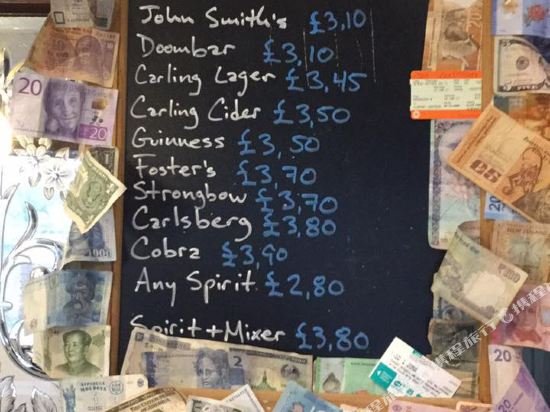 John Smith's £3,10
Doombar £3,10
Carling Lager £3,45
Carling Cider £3,50
Guinness £3,50
Foster's £3,70
Strongbow £3,70
Carlsberg £3,80
Cobra £3,90
Any Spirit £2,80
Spirit+Mixer £3,80
20
20
5
50
2
20